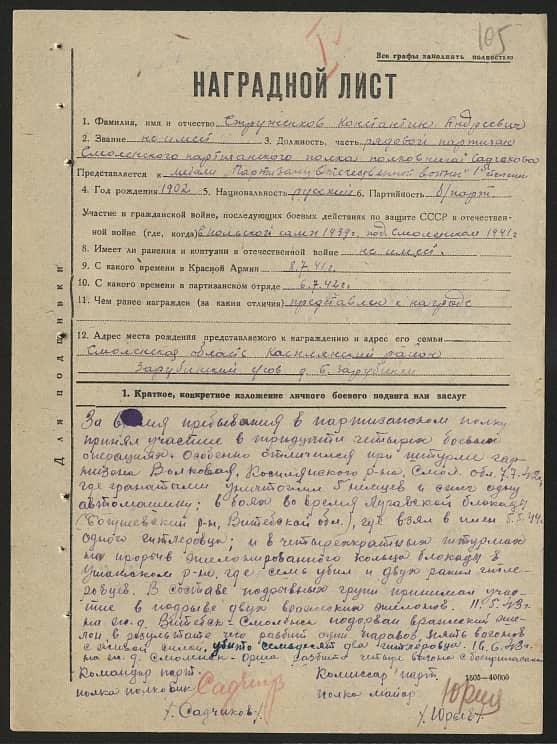 105
Все графы заполнять полностью
НАГРАДНОЙ ЛИСТ
1. Фамилия, имя и отчество Струженков Константин Андреевич
2. Звание не имеет 3. Должность, часть рядовой партизан
Смоленского партизанского полка полковника Садчикова
Представляется к медали „Партизану Отечественной войны" 1й степени
4. Год рождения 1902 5. Национальность русский 6. Партийность б/парт.
Участие в гражданской войне, последующих боевых действиях по защите СССР и отечествен-
ной войне (где, когда) в польской камп 1939г, под Смоленском 1941г
8. Имеет ли ранения и контузии в отечественной войне не имеет.
9. С какого времени в Красной Армии 8.7.41г.
10. С какого времени в партизанском отряде 6.7.42г.
11. Чем ранее награжден (за какие отличия) представлен к награде
12. Адрес места рождения представляемого к награждению и адрес его семьи
Смоленская область Касплянский район
Зарубинский с/сов д. Б. Зарубинки
Для подшивки
1. Краткое, конкретное изложение личного боевого подвига или заслуг
За время пребывания в партизанском полку
принял участие в тридцати четырех боевых
операциях. Особенно отличился при штурме гар-
низона Волковая, Касплянского р-на, Смол. обл. 7.7.42г,
где гранатами уничтожил 5 немцев и сжег одну
автомашину; в боях во время Лучевской блокады
(Богушевский р-н, Витебской обл.), где взял в плен 5.5.44г.
одного гитлеровца; и в четырехкратных штурмах
на прорыв эшелонированного кольца блокады в
Ушачском р-не, где семь убил и двух ранил гитле-
ровцев. В составе подрывных групп принимал учас-
тие в подрыве двух вражеских эшелонов. 11.5.43г.
на ж.д. Витебск-Смоленск подорван вражеский эше-
лон, в результате чего разбит один паровоз, пять вагонов
с живой силой, убито семьдесят два гитлеровца. 16.6.43г.
на ж.д. Смоленск-Орша разбито четыре вагона с боеприпасами
Командир парт.
полка полковник Садчиков
/Садчиков/.
Комиссар парт.
полка майор Юрьев
/Юрьев/
1505-40000